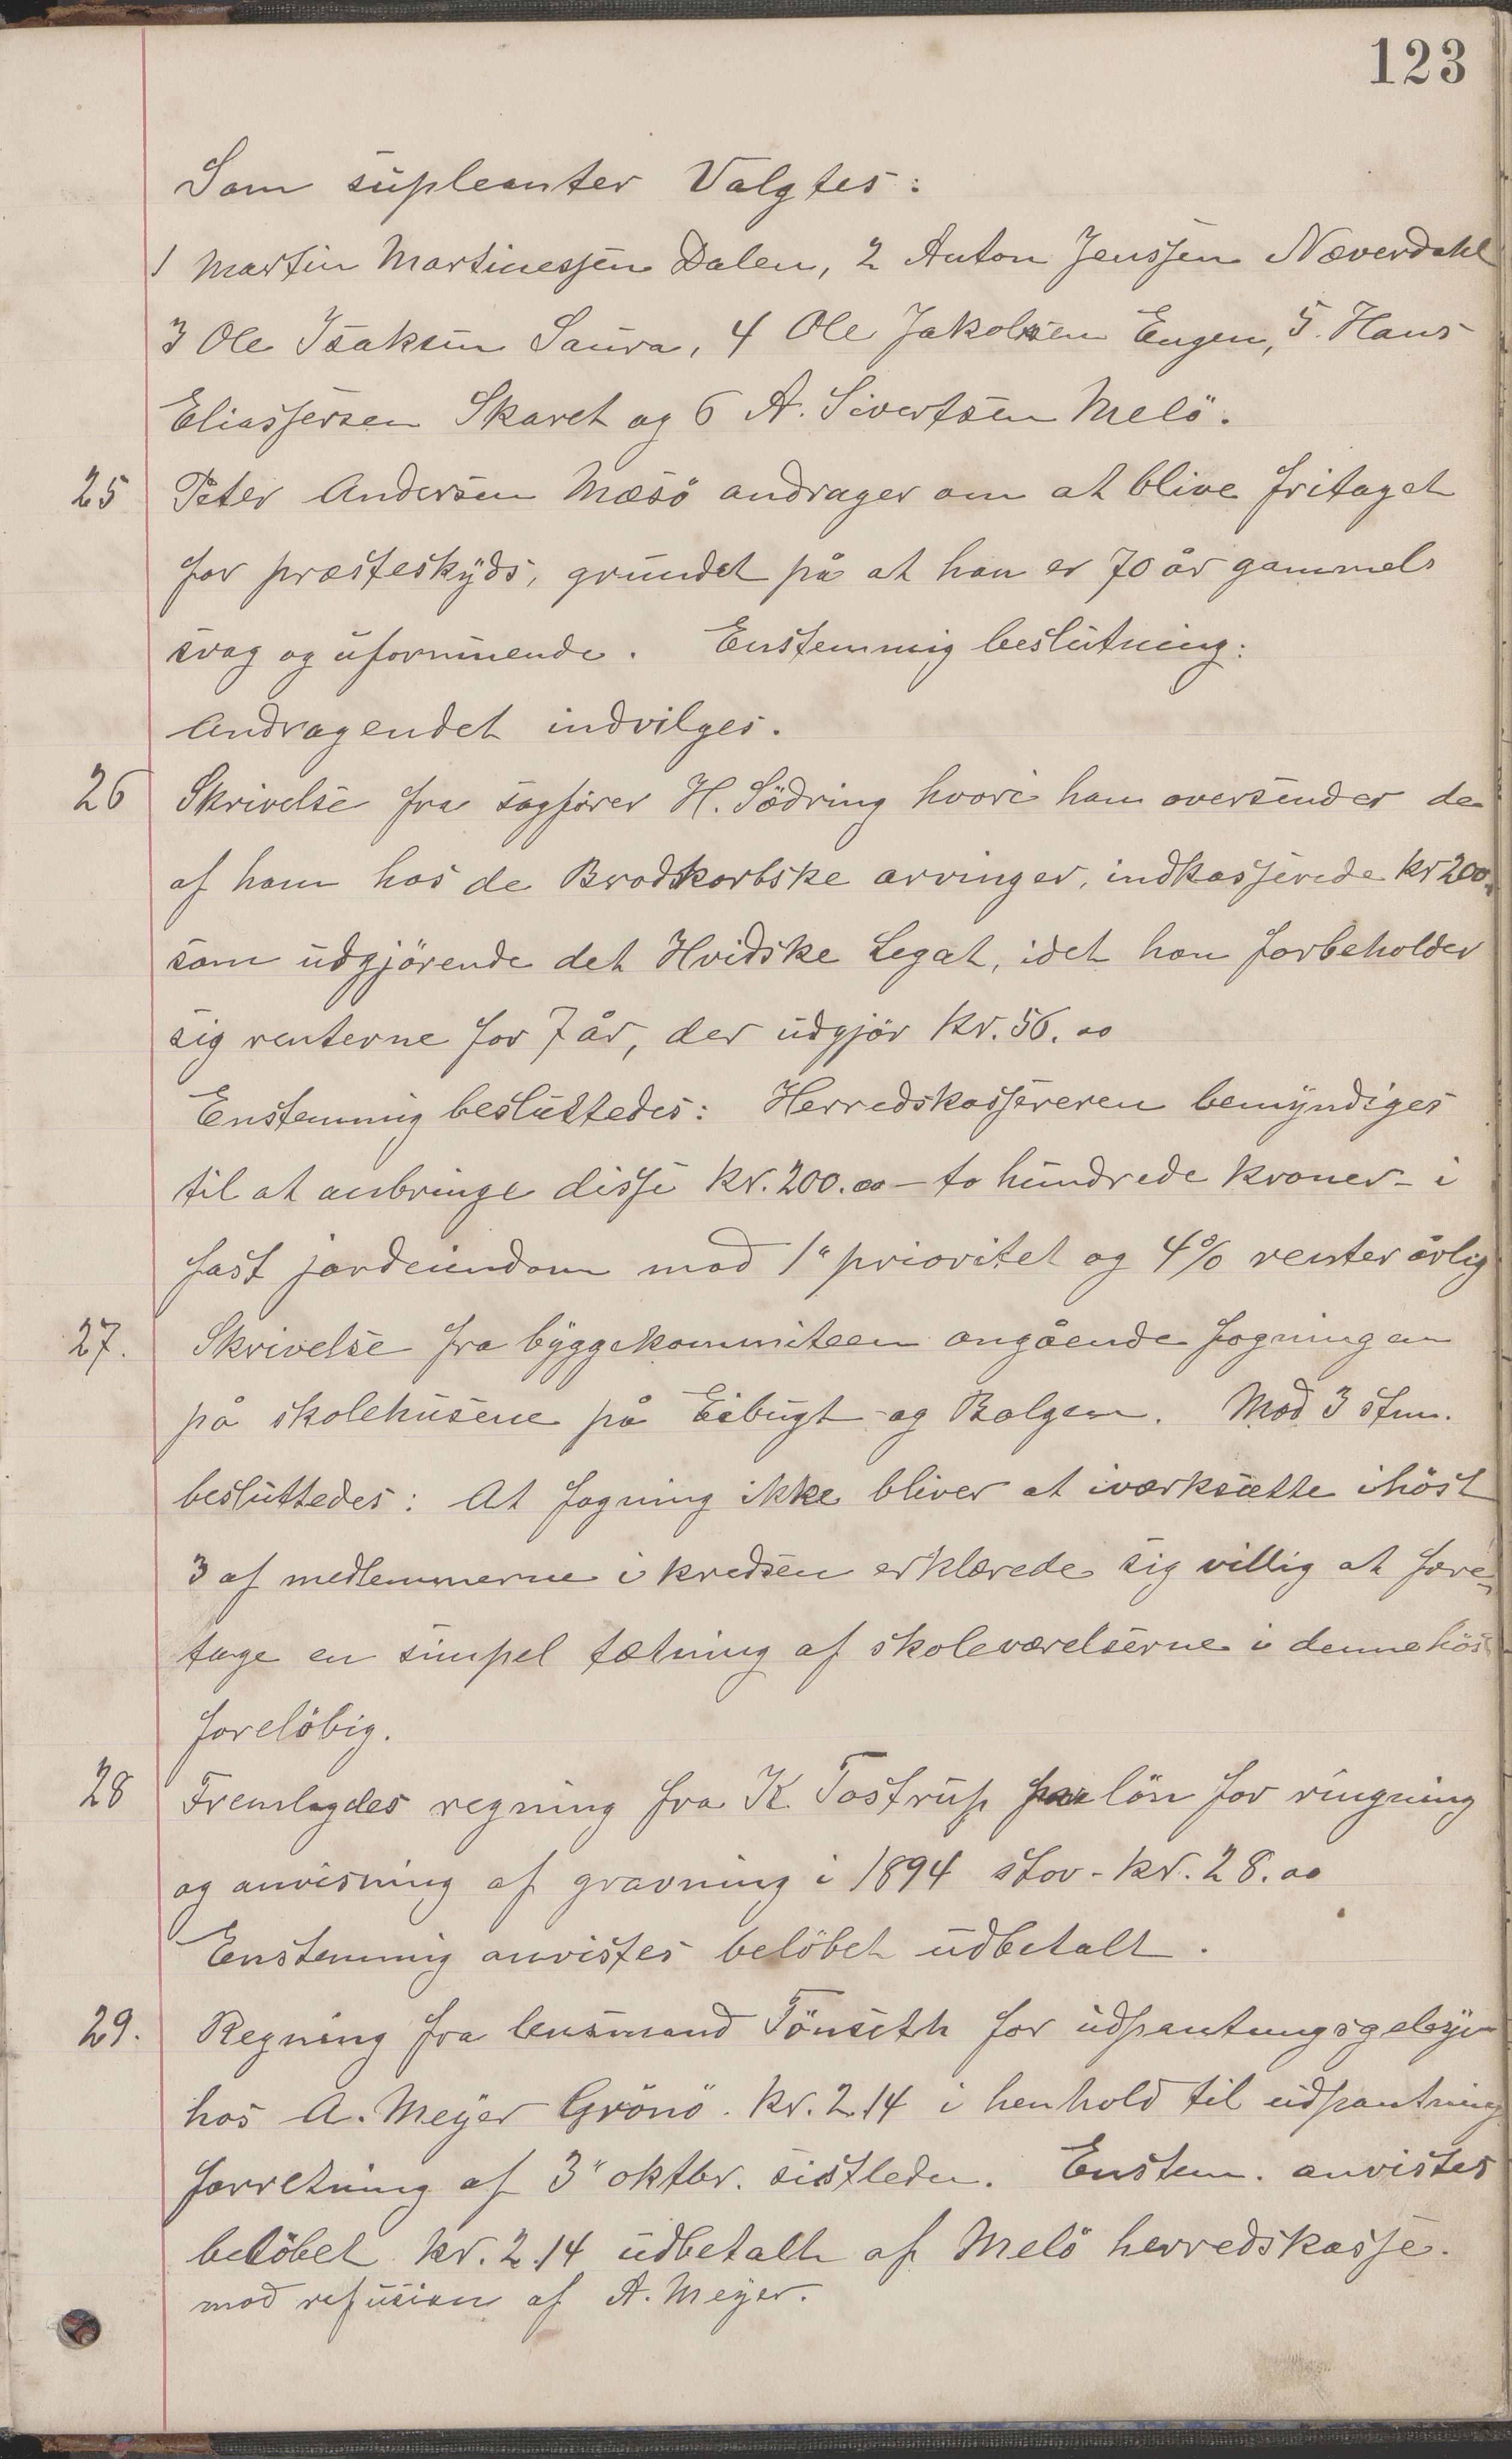 123
Som supleanter Valgtes:
1 Martin Martinessen Dalen, 2 Anton Jenssen Næverdahl
3 Ole Isaksen Saura, 4 Ole Jakobsen Engen, 5. Hans
Eliassersen Skaret og 6 A. Sivertsen Melö.
25 Peter Andersen Mæsö andrager om at blive fritaget
for præsteskyds, grundet på at han er 70 år gammel
svag og uformuende. Enstemmig beslutning:
Andragendet indvilges.
26 Skrivelse fra sagförer H. Södring hvori han oversender de
af ham hos de Brodkorbske arvinger, indkasserede kr 200.
som udgjörende det Hvidske Legat, idet han forbeholder
sig renterne for 7 år, der udgjör kr. 56.00
Enstemmig besluttedes: Herredskassereren bemyndiges
til at anbringe disse kr. 200.00 – to hundrede kroner – i
fast jordeiendom mod 1" prioritet og 4% renter årlig
27. Skrivelse fra byggekommiteen angående fogningen
på skolehusene på Eibugt og Bolgen. Mod 3 stm.
besluttedes: At fogning ikke bliver at iværksætte ihöst
3 af medlemmerne i kredsen erklærede sig villig at fore-
tage en simpel tætning af skoleværelserne i denne höst
forelöbig.
28 Fremlagdes regning fra K. Tostrup for lön for ringning
og anvisning af gravning i 1894 stor - kr. 28.00
Enstemmig anvistes belöbet udbetalt.
29. Regning fra lensmand Tönseth for udpantningsgebyr
hos A. Meyer Grönö. kr. 2.14 i henhold til udpantning
forretning af 3" oktbr. sistleden. Enstem. anvistes
belöbet kr. 2.14 udbetalt af Melö herredskasse.
mod refusion af A. Meyer.